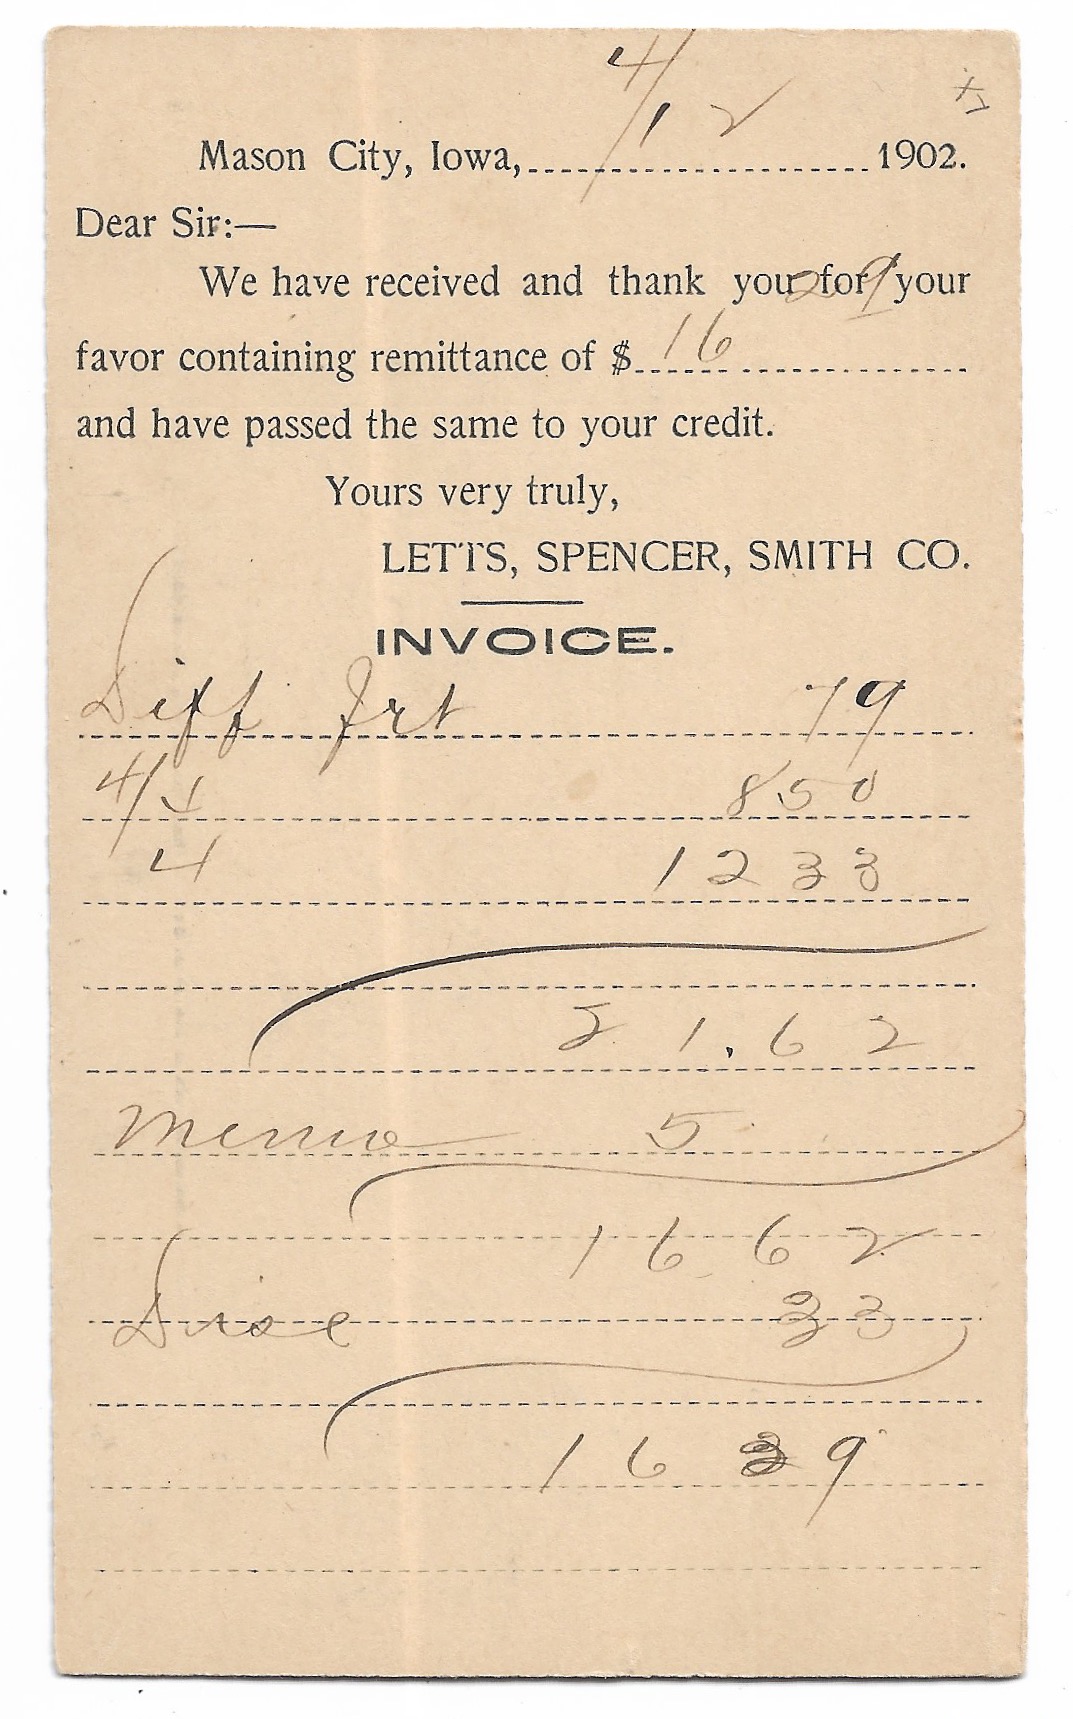 4/12
Mason City, Iowa, 1902.
Dear Sir:—
We have received and thank you for your
favor containing remittance of $ 16 29
and have passed the same to your credit.
Yours very truly,
LETTS, SPENCER, SMITH CO.
INVOICE.
Diff Frt 79
4/4 850
4 1233
21.62
Memo 5
16 62
Disc 33
16 39